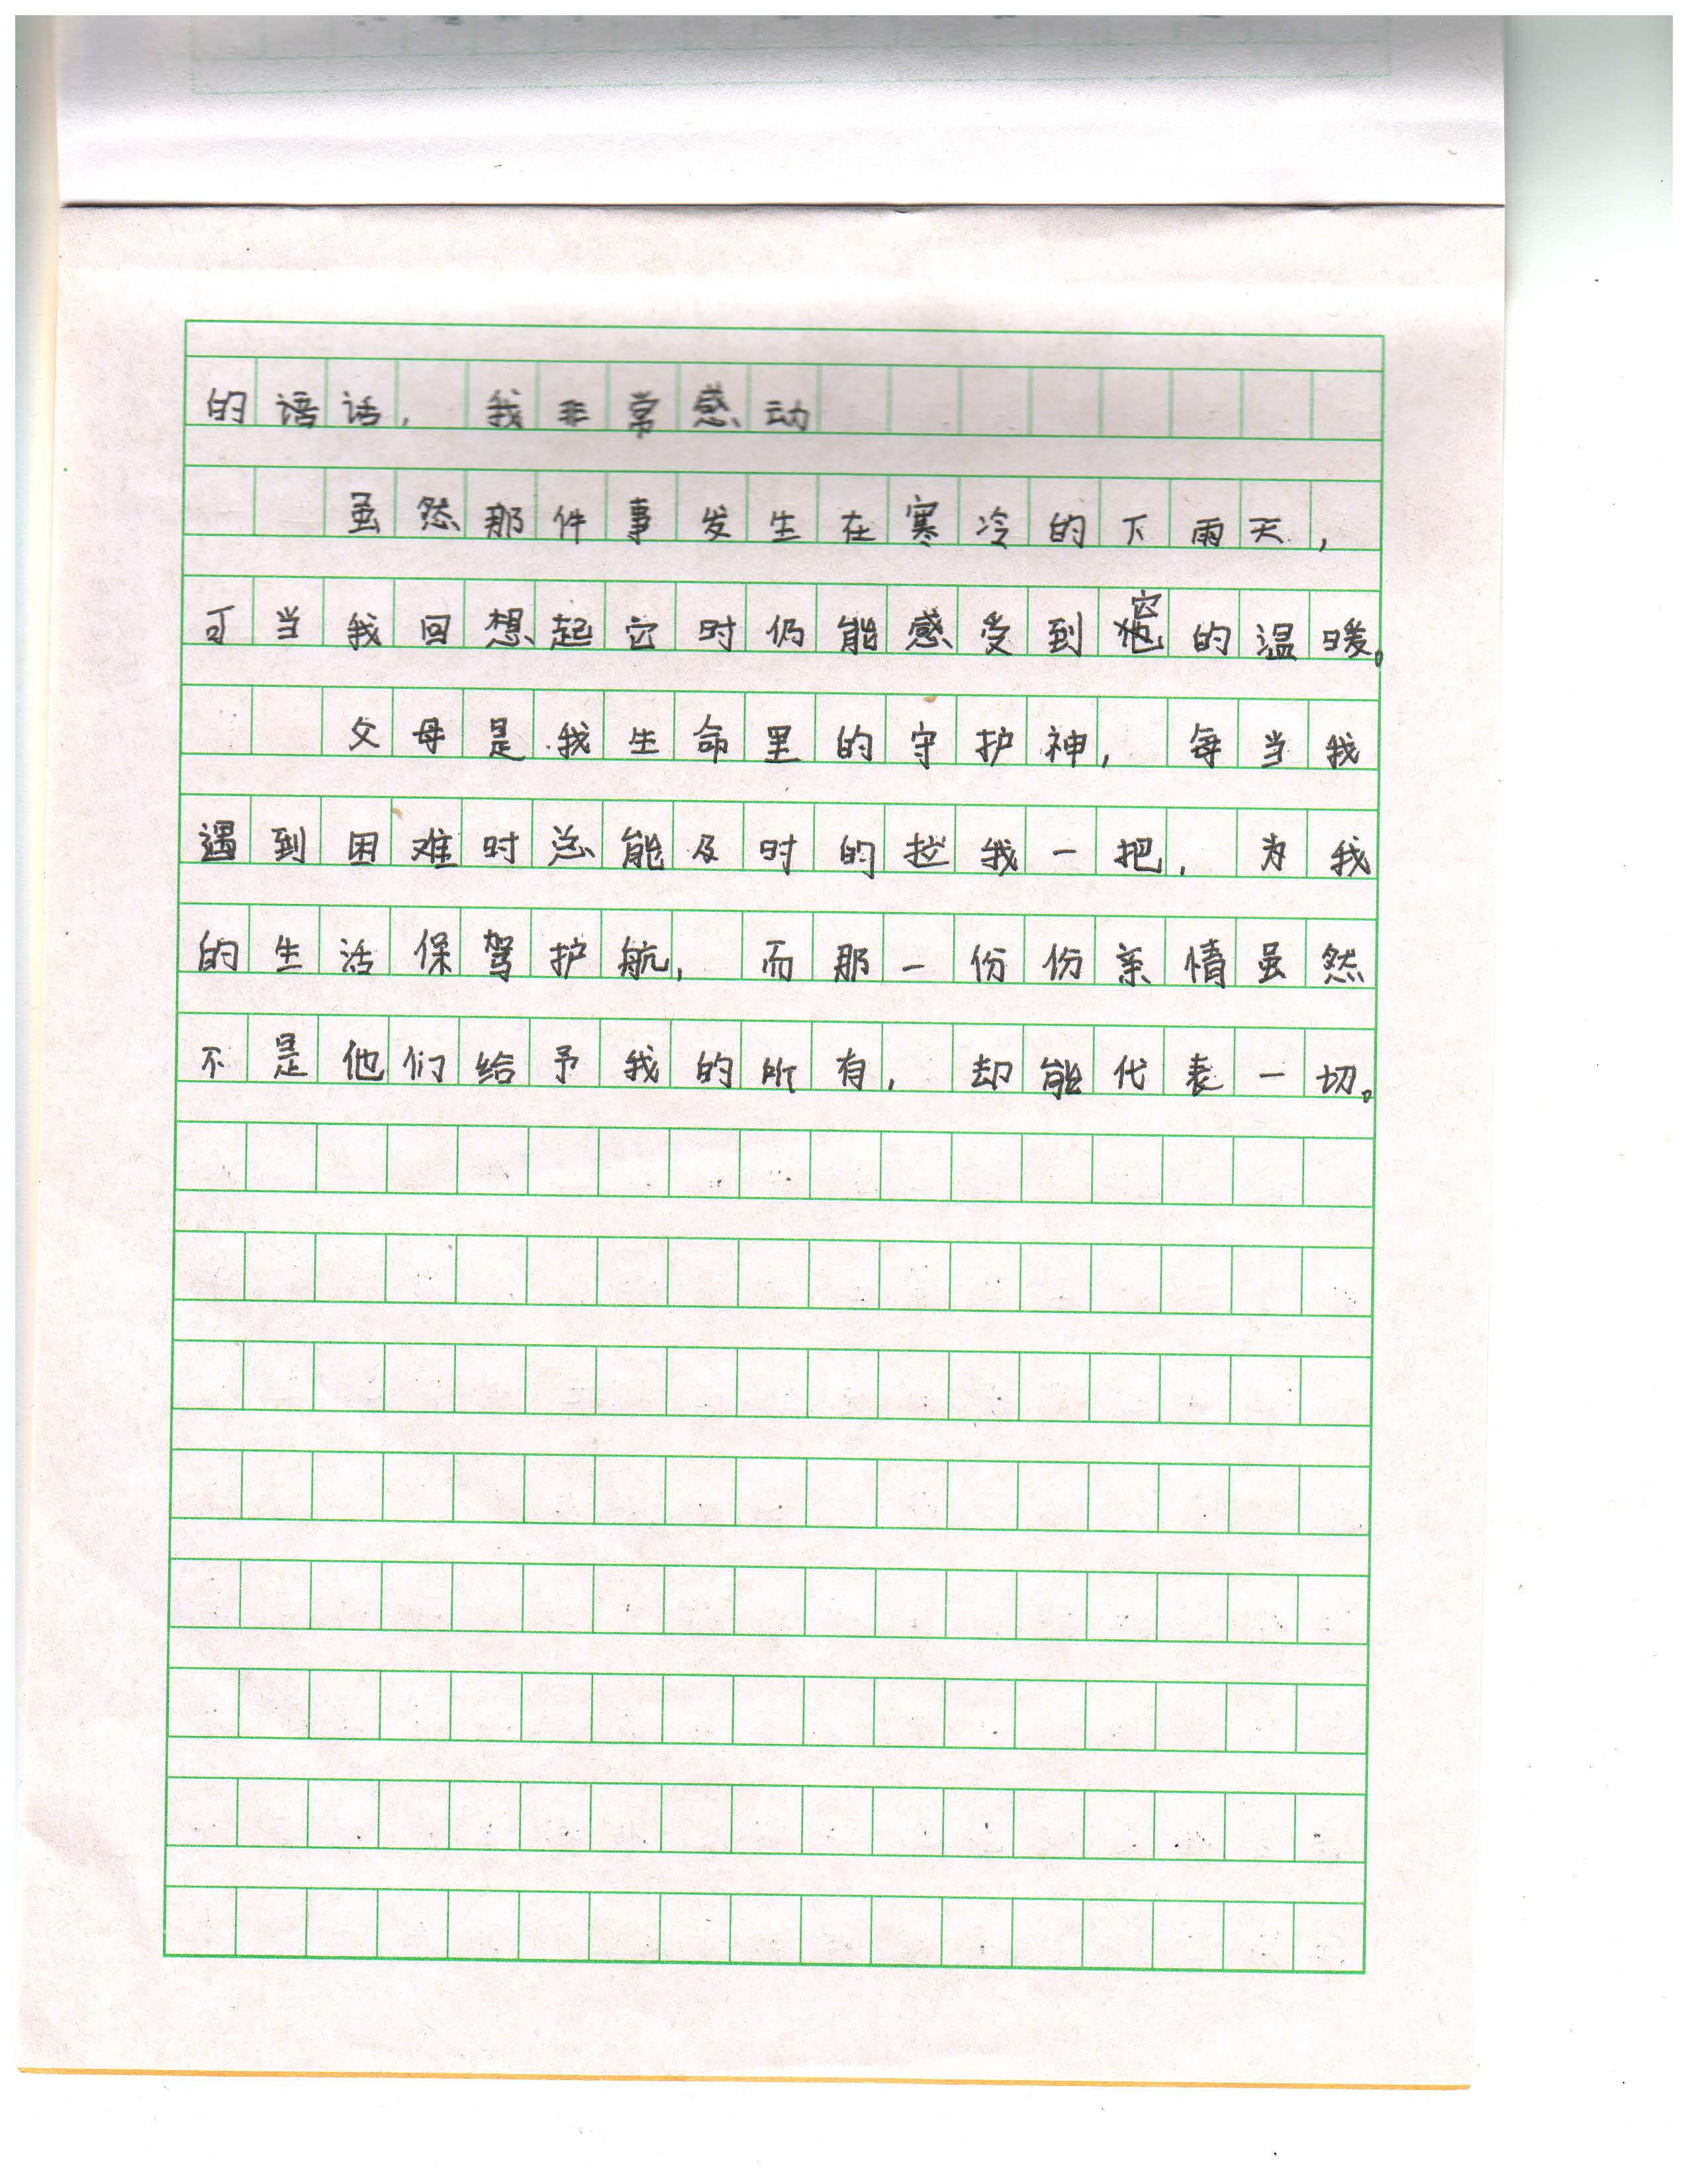 的语话，我非常感动
虽然那件事发生在寒冷的下雨天，
可当我回想起它时仍能感受到它的温暖。
父母是我生命里的守护神，每当我
遇到困难时总能及时的拉我一把，为我
的生活保驾护航，而那一份份亲情虽然
不是他们给予我的所有，却能代表一切。